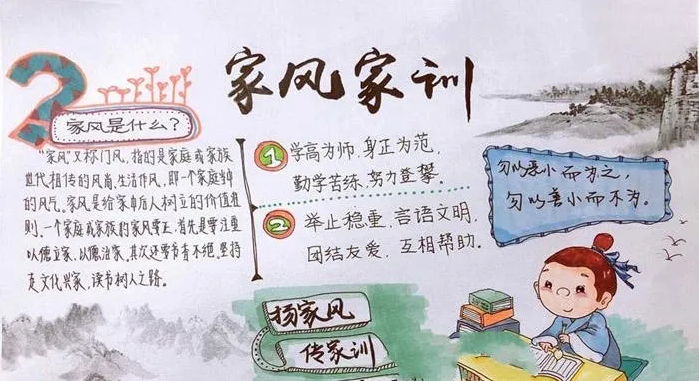 家风家训
家风是什么?
"家风"又称门风,指的是家庭或家族
世代相传的风尚、生活作风,即一个家庭当中
的风气。家风是给家中后人树立的价值准
则,一个家庭或家族的家风要正,首先是要注重
以德立家、以德治家,其次还要书香不绝,坚持
走文化兴家、读书树人之路。
1 学高为师,身正为范,
勤学苦练,努力登攀。
2 举止稳重,言语文明,
团结友爱,互相帮助。
勿以恶小而为之,
勿以善小而不为。
扬家风
传家训